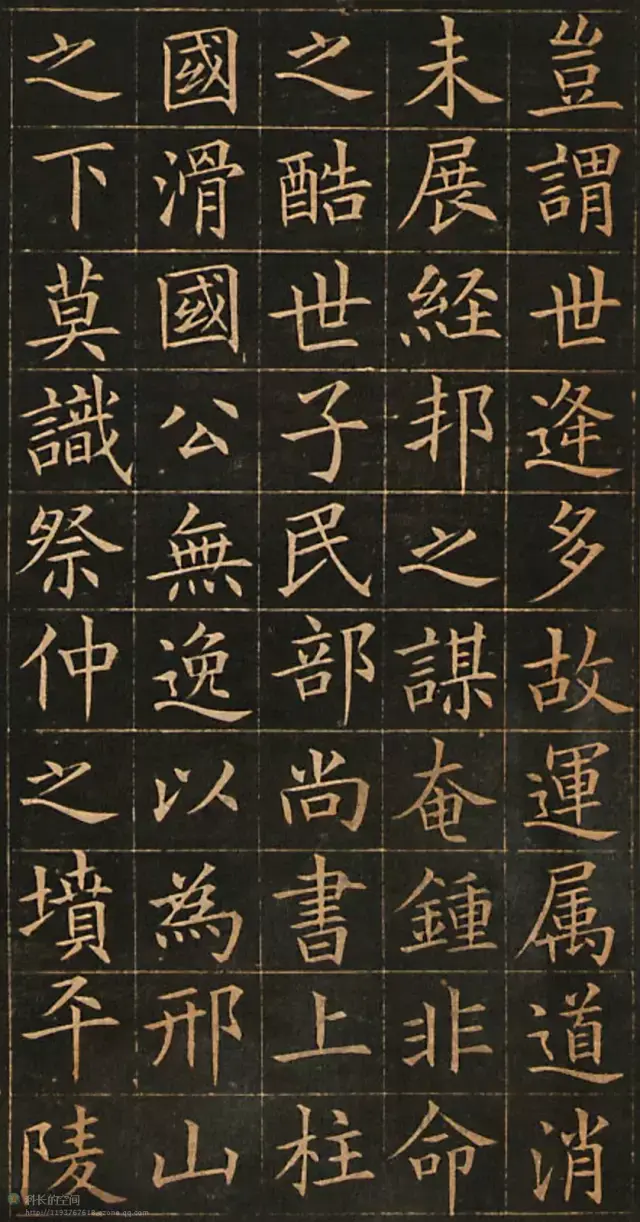 豈謂世逄多故運属道消
未展経邦之謀奄鍾非命
之酷世子民部尚書上柱
國滑國公無逸以為邢山
之下莫識祭仲之墳平陵
科长的空间
http://1193767618.qzone.qq.com